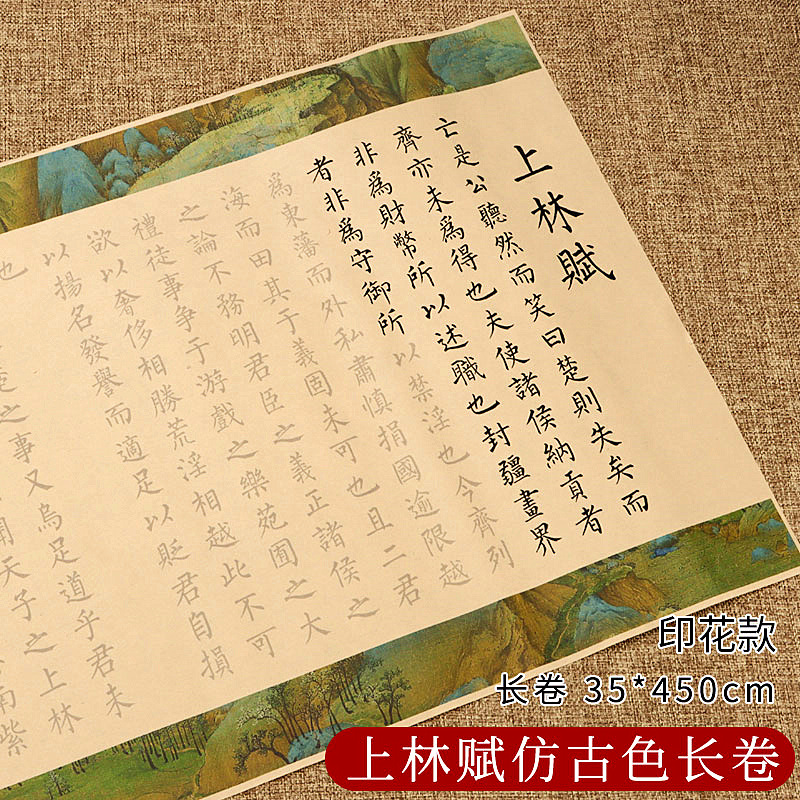 上林賦
亡是公聽然而笑曰楚則失矣而
齊亦未爲得也夫使諸侯納貢者
非爲財幣所以述職也封疆畫界
者非爲守御所以禁淫也今齊列
爲東藩而外私肅慎捐國逾限越
海而田其于義固未可也且二君
之論不務明君臣之義正諸侯之
禮徒事爭于游戲之樂苑囿之大
欲以奢侈相勝荒淫相越此不可
以揚名發譽而適足以貶君自損
也
楚之事又烏足道乎君未
天子之上林
南紫
印花款
长卷 35*450cm
上林赋仿古色长卷